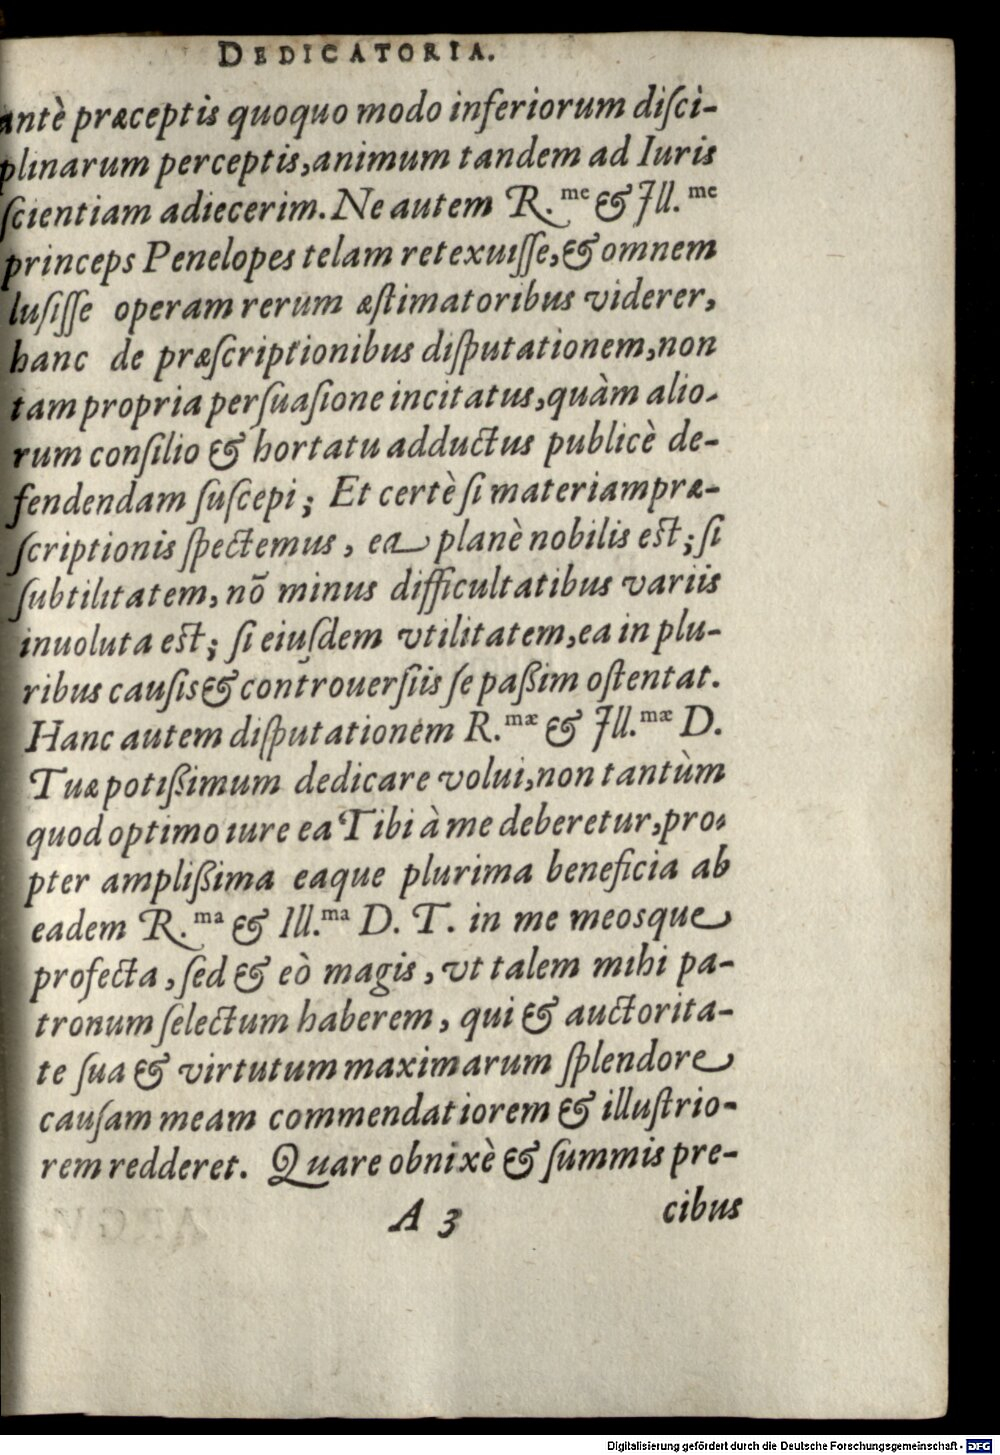 DEDICATORIA.
antè præceptis quoquo modo inferiorum diſci-
plinarum perceptis, animum tandem ad Iuris
ſcientiam adiecerim. Ne autem R.me & Ill.me
princeps Penelopes telam retexuiſſe, & omnem
luſiſſe operam rerum æſtimatoribus viderer,
hanc de præſcriptionibus diſputationem, non
tam propria perſuaſione incitatus, quàm alio-
rum conſilio & hortatu adductus publicè de-
fendendam ſuſcepi; Et certè ſi materiam præ-
ſcriptionis ſpectemus, ea planè nobilis eſt; ſi
ſubtilitatem, nõ minus difficultatibus variis
inuoluta eſt; ſi eiuſdem vtilitatem, ea in plu-
ribus cauſis & controuerſiis ſe paßim oſtentat.
Hanc autem diſputationem R.mæ & Ill.mæ D.
Tuæ potißimum dedicare volui, non tantùm
quod optimo iure ea Tibi à me deberetur, pro-
pter amplißima eaque plurima beneficia ab
eadem R.ma & Ill.ma D. T. in me meosque
profecta, ſed & eò magis, vt talem mihi pa-
tronum ſelectum haberem, qui & auctorita-
te ſua & virtutum maximarum ſplendore
cauſam meam commendatiorem & illuſtrio-
rem redderet. Quare obnixè & ſummis pre-
A 3 cibus
Digitalisierung gefördert durch die Deutsche Forschungsgemeinschaft - DFG